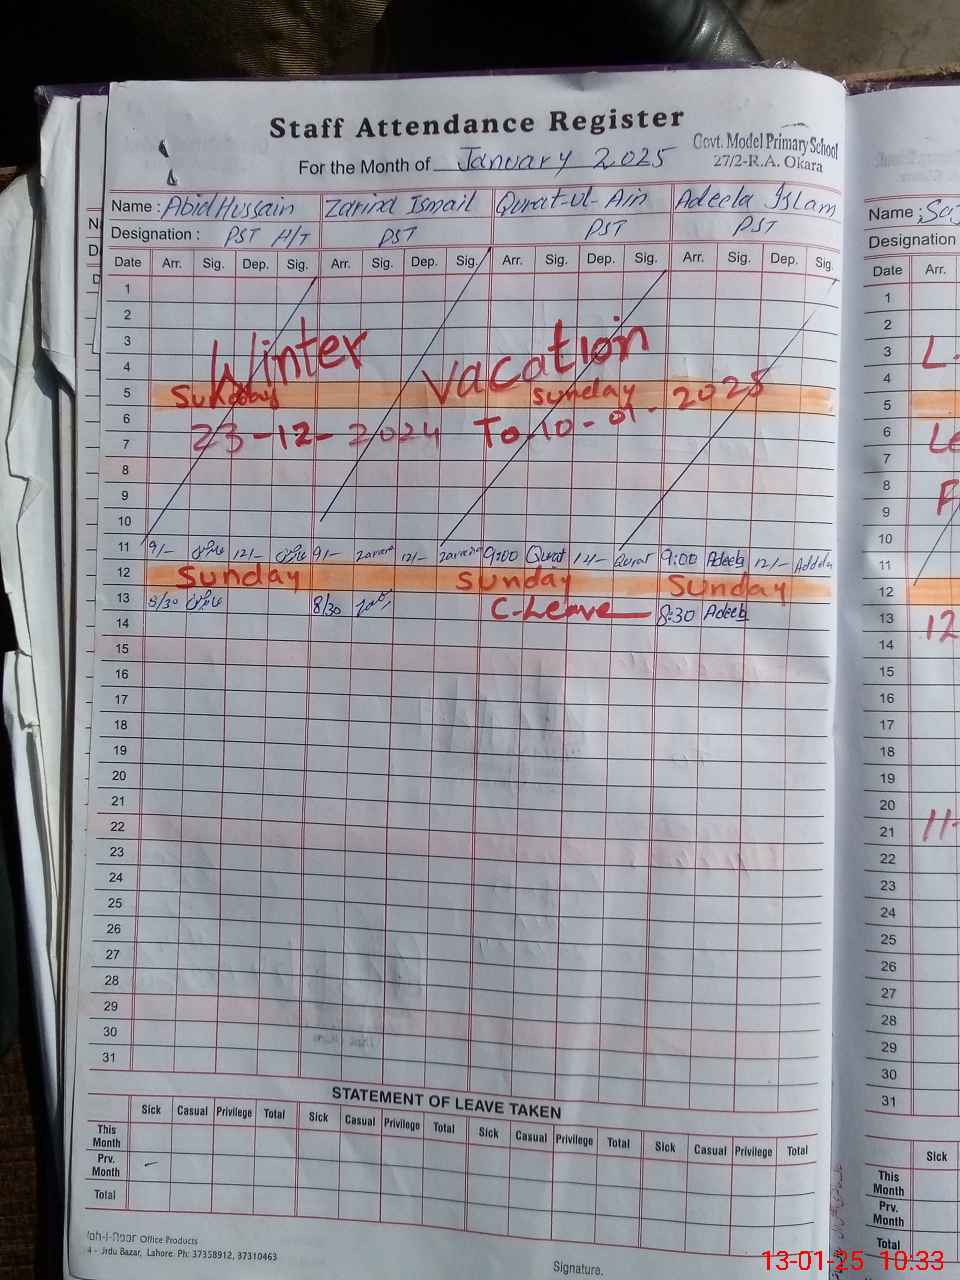 Staff Attendance Register
Govt. Model Primary School
27/2-R.A. Okara
For the Month of January 2025
Name : Abid Hussain Zarina Ismail Qurat-ul-Ain Adeela Islam
Designation : PST H/T PST PST PST
Date Arr. Sig. Dep. Sig. Arr. Sig. Dep. Sig. Arr. Sig. Dep. Sig. Arr. Sig. Dep. Sig.
1
2
3
Winter Vacation
4
5 Sunday Sunday
6
23-12-2024 To 10-01-2025
7
8
9
10
11 9/- 12/- 9/- 12/- 9:00 Qurat 12/- Qurat 9:00 Adeela 12/-
12 Sunday Sunday Sunday
13 8/30 8/30 C-Leave 8:30 Adeela
14
15
16
17
18
19
20
21
22
23
24
25
26
27
28
29
30
31
STATEMENT OF LEAVE TAKEN
Sick Casual Privilege Total Sick Casual Privilege Total Sick Casual Privilege Total Sick Casual Privilege Total
This Month
Prv. Month -
Total
Office Products
Urdu Bazar, Lahore. Ph: 37358912, 37310463
Signature.
Name :
Designation
Date Arr.
1
2
3 L
4
5
6
7
8
9
10
11
12
13 12
14
15
16
17
18
19
20
21 11
22
23
24
25
26
27
28
29
30
31
Sick
This Month
Prv. Month
Total
13-01-25 10:33